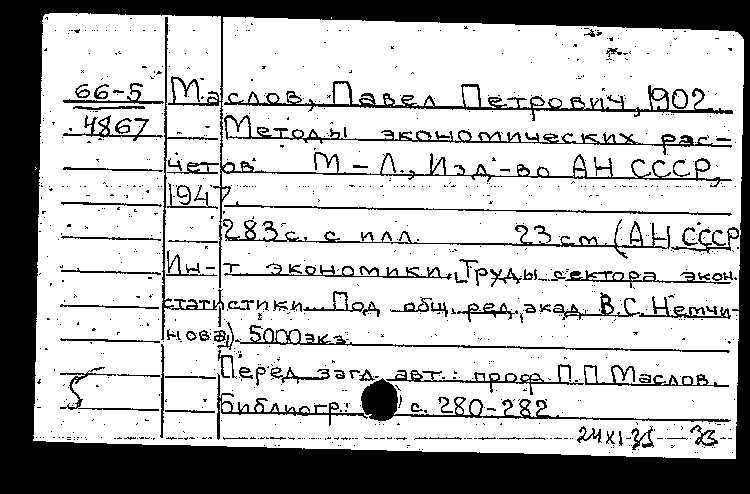 66-5 Маслов, Павел Петрович, 1902
4867 Методы экономических рас-
четов. М-Л., Изд-во АН СССР,
1947.
283 с. с илл. 23 см (АН СССР
Ин-т экономики. Труды сектора экон.
статистики. Под общ. ред. акад. В.С. Немчи-
нова). 5000 экз.
Перед загл. авт.: проф. П.П. Маслов.
Библиогр.: с. 280-282.
33